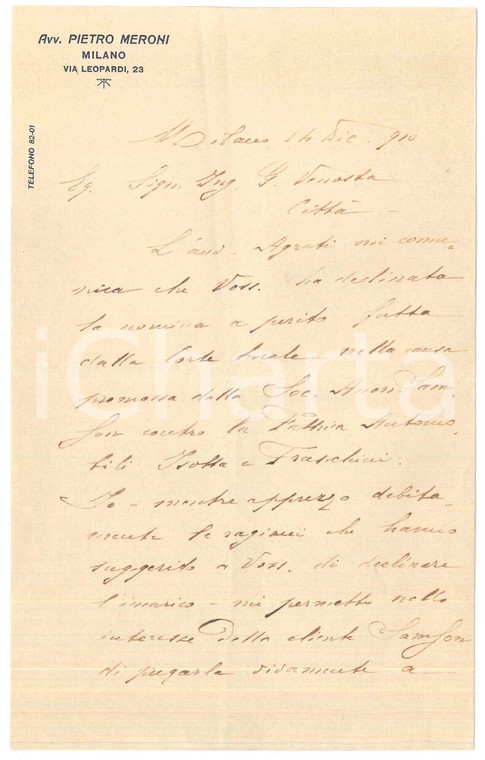 Avv. PIETRO MERONI
MILANO
VIA LEOPARDI, 23
TELEFONO 82-01
Milano 14 Dic. 910
Eg. Sign. Ing. G. Venosta
Città -
L'avv. Agrati mi comu-
nica che Voss. ha declinato
la nomina a perito fatta
dalla Corte locale nella causa
promossa dalla Soc. Anon. Sam-
son contro la Fabbrica Automo
bili Isotta e Fraschini.
Io - mentre apprezzo debita
mente le ragioni che hanno
suggerito a Voss. di declinare
l'incarico - mi permetto nello
interesse della cliente Samson
di pregarla vivamente a
iCharta